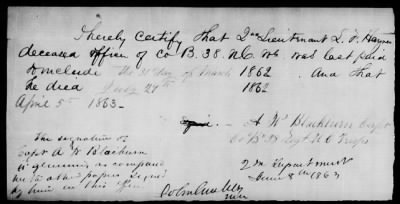 I hereby certify that 2nd Lieutenant L. F. Haynes
deceased officer of Co B. 38. N.C. was last paid
to include the 31st day of March 1862. And that
he died 27th 1862
April 5th 1863.
A W Blackburn Capt
Co B 38 Regt N C Troops
The signature of
Capt A W Blackburn
is genuine as compared
with other papers signed
by him in this office
2nd Department
June 8th 1863